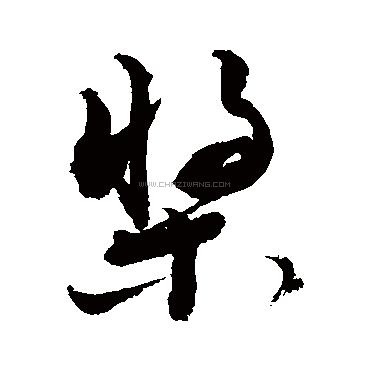 槳
WWW.CHAZIWANG.COM